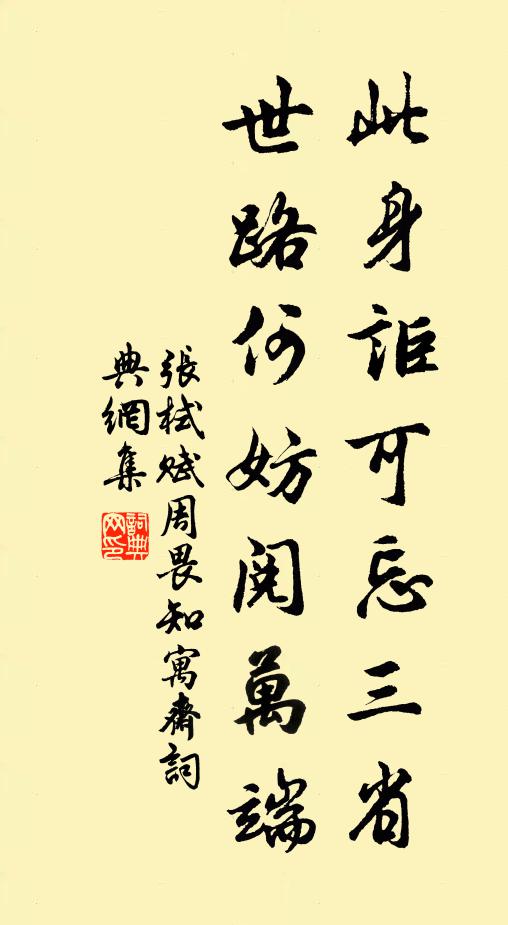 此身詎可忘三省
世路何妨閱萬端
張栻賦周畏知寓齋詞
典網集
詞典網印